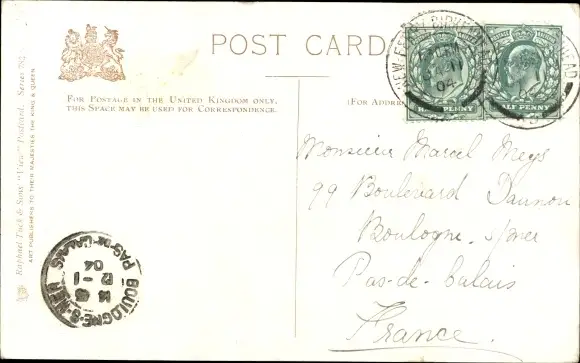 POST CARD
FOR POSTAGE IN THE UNITED KINGDOM ONLY,
THIS SPACE MAY BE USED FOR CORRESPONDENCE.
(FOR ADDRE
HALF PENNY
HALF PENNY
NEW FERRY BIRKENHEAD
JA 11
04
Monsieur Marcel Meys
99 Boulevard Daunou
Boulogne. s/mer
Pas-de-Calais
France.
Raphael Tuck & Sons' "View" Postcard. Series
ART PUBLISHERS TO THEIR MAJESTIES THE KING & QUEEN
BOULOGNE-S-MER
PAS-DE-CALAIS
12 - 1
04